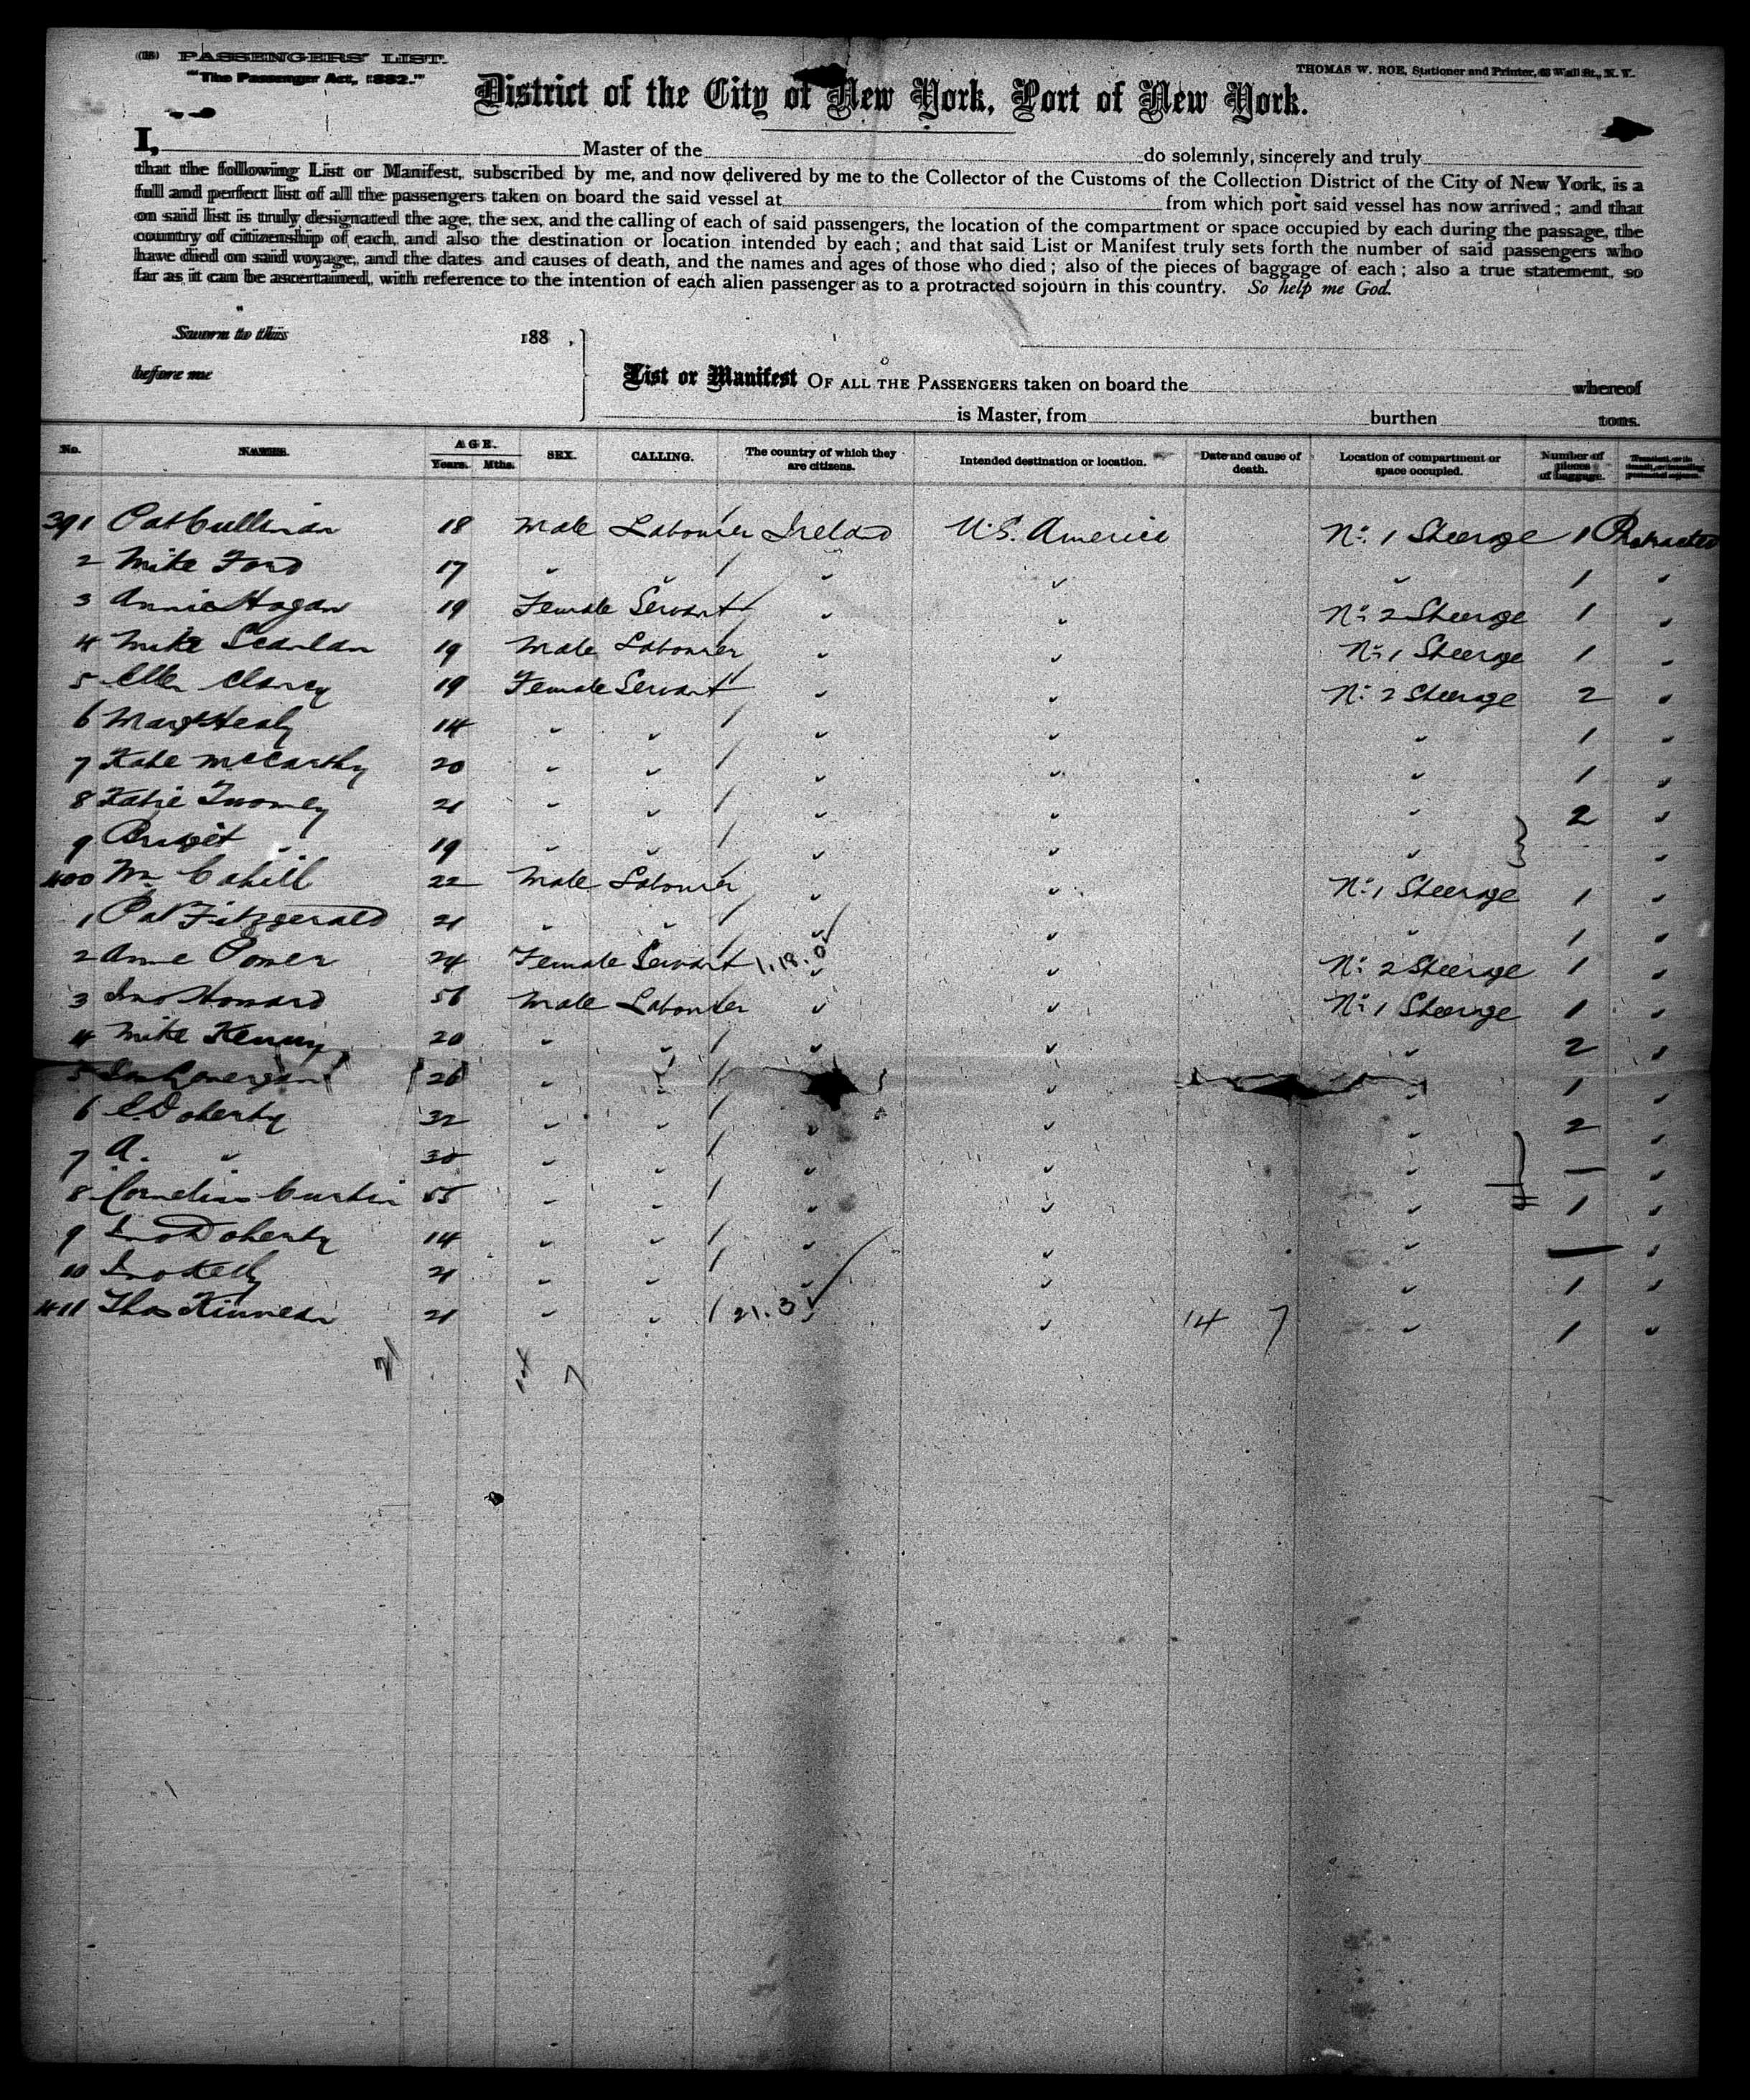 (18) PASSENGERS' LIST.
"The Passenger Act, 1882."
THOMAS W. ROE, Stationer and Printer, Wall St., N. Y.
District of the City of New York, Port of New York.
I, Master of the do solemnly, sincerely and truly
that the following List or Manifest, subscribed by me, and now delivered by me to the Collector of the Customs of the Collection District of the City of New York, is a
full and perfect list of all the passengers taken on board the said vessel at from which port said vessel has now arrived; and that
on said list is truly designated the age, the sex, and the calling of each of said passengers, the location of the compartment or space occupied by each during the passage, the
country of citizenship of each, and also the destination or location intended by each; and that said List or Manifest truly sets forth the number of said passengers who
have died on said voyage, and the dates and causes of death, and the names and ages of those who died; also of the pieces of baggage of each; also a true statement, so
far as it can be ascertained, with reference to the intention of each alien passenger as to a protracted sojourn in this country. So help me God.
Sworn to this 188 ,
before me
List or Manifest OF ALL THE PASSENGERS taken on board the whereof
is Master, from burthen tons.
No. NAMES. AGE. Years. Mths. SEX. CALLING. The country of which they are citizens. Intended destination or location. Date and cause of death. Location of compartment or space occupied. Number of pieces of baggage.
391 Pat Cullinan 18 Male Labourer / Ireland U.S. America No: 1 Steerage 1 Protracted
2 Mike Ford 17 " " / " " " 1 "
3 Annie Hogan 19 Female Servant / " " No: 2 Steerage 1 "
4 Mike Scanlan 19 Male Labourer / " " No: 1 Steerage 1 "
5 Ellen Clancy 19 Female Servant / " " No: 2 Steerage 2 "
6 Mary Healy 14 " " / " " " 1 "
7 Kate McCarthy 20 " " / " " " 1 "
8 Katie Twomey 21 " " / " " " 2 "
9 Bridget " 19 " " / " " " "
400 Wm Cahill 22 Male Labourer / " " No: 1 Steerage 1 "
1 Pat Fitzgerald 21 " " / " " " 1 "
2 Anne Power 24 Female Servant / 1.18.0 " " No: 2 Steerage 1 "
3 Jno Howard 56 Male Labourer / " " No: 1 Steerage 1 "
4 Mike Kenny 20 " " / " " " 2 "
5 26 " " / " " 1 "
6 Doherty 32 " " / " " " 2 "
7 A. " 30 " " / " " " — "
8 Cornelius Curtin 55 " " / " " " 1 "
9 Jno Doherty 14 " " / " " " — "
10 Jno Kelly 21 " " / " " " 1 "
411 Thos Kinnean 21 " " / 21.3 " " 14 7 " 1 "
21 14 7